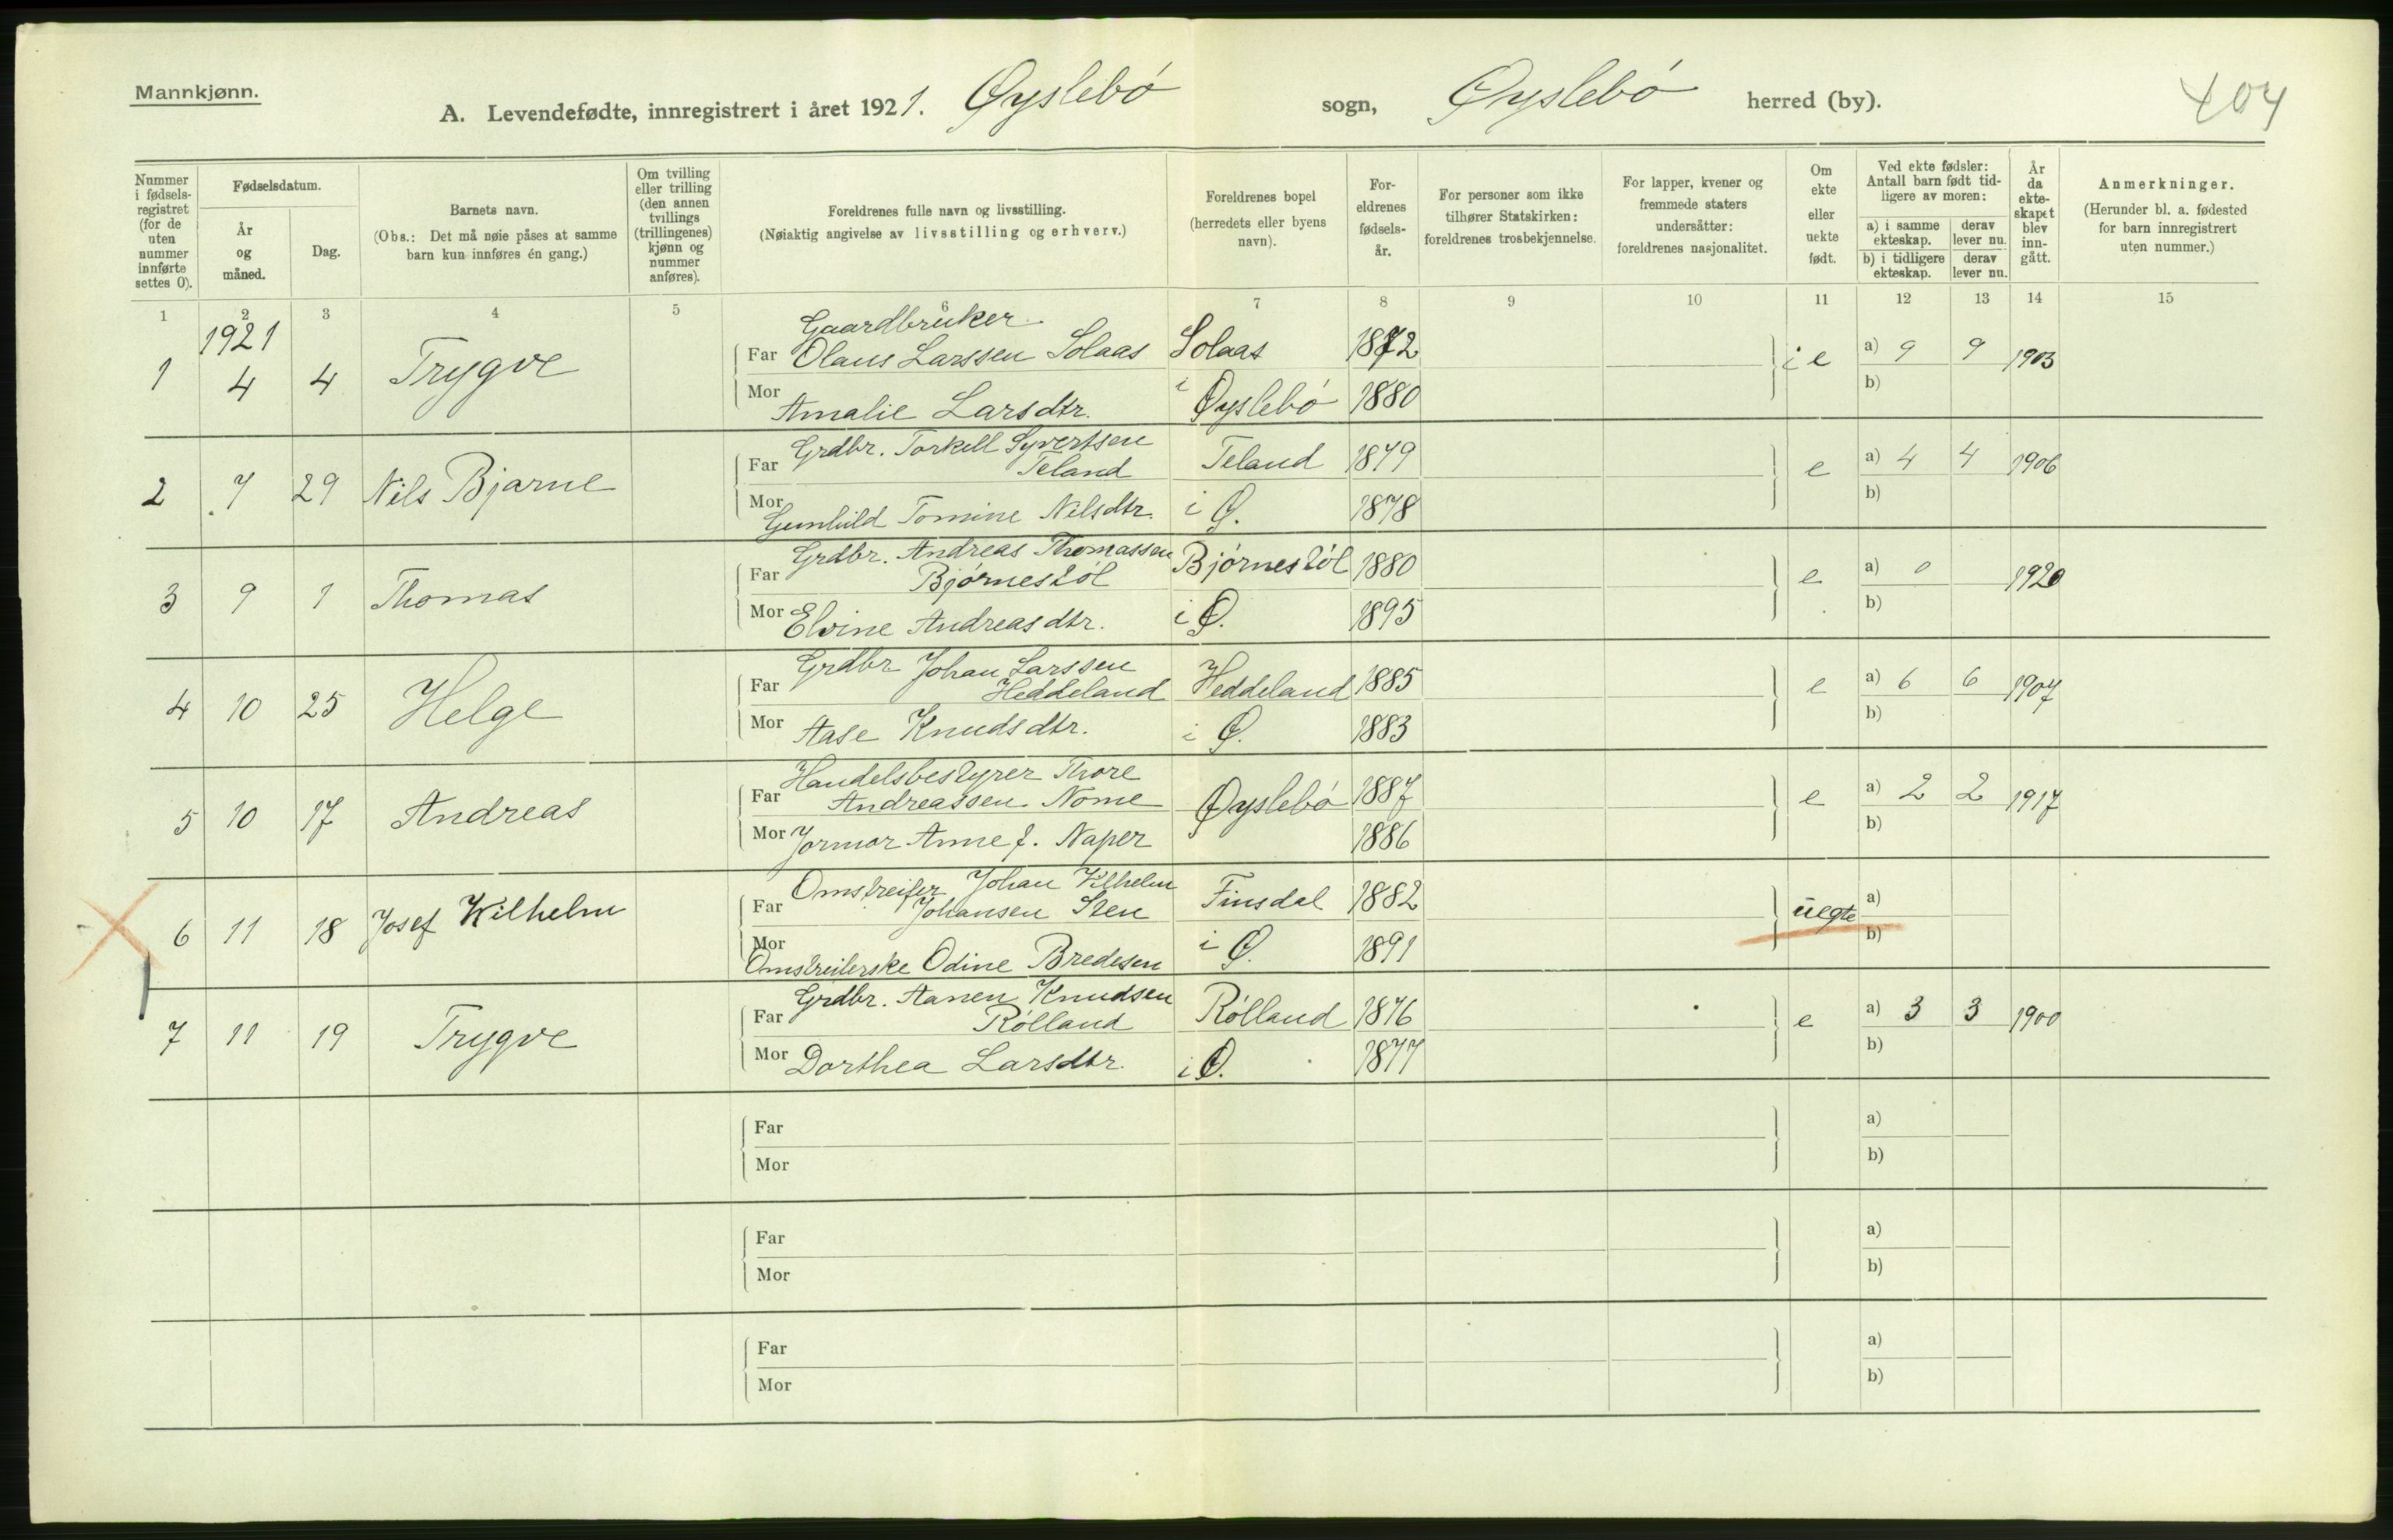 Mannkjønn.
A. Levendefødte, innregistrert i året 1921. Øyslebö sogn, Øyslebö herred (by).
404
Nummer i fødsels-registret (for de uten nummer innførte settes 0).
Fødselsdatum.
År og måned.
Dag.
Barnets navn.
(Obs.: Det må nøie påses at samme barn kun innføres én gang.)
Om tvilling eller trilling (den annen tvillings (trillingenes) kjønn og nummer anføres).
Foreldrenes fulle navn og livsstilling.
(Nøiaktig angivelse av livsstilling og erhverv.)
Foreldrenes bopel (herredets eller byens navn).
For-eldrenes fødsels-år.
For personer som ikke tilhører Statskirken: foreldrenes trosbekjennelse.
For lapper, kvener og fremmede staters undersåtter: foreldrenes nasjonalitet.
Om ekte eller uekte født.
Ved ekte fødsler: Antall barn født tid-ligere av moren:
a) i samme ekteskap.
derav lever nu.
b) i tidligere ekteskap.
derav lever nu.
År da ekte-skapet blev inn-gått.
Anmerkninger.
(Herunder bl. a. fødested for barn innregistrert uten nummer.)
1 2 3 4 5 6 7 8 9 10 11 12 13 14 15
1921
Gaardbruker
1 4 4 Trygve Far Olaus Larssen Solaas Solaas 1872 ie a) 9 9 1903
Mor Amalie Larsdtr. i Øyslebö 1880 b)
Grdbr. Torkell Syvertsen
2 7 29 Nils Bjarne Far Teland Teland 1879 e a) 4 4 1906
Mor Gunhild Tomine Nilsdtr. i Ø. 1878 b)
Grdbr. Andreas Thomassen
3 9 1 Thomas Far Bjørnestöl Bjørnestöl 1880 e a) 0 1920
Mor Elvine Andreasdtr. i Ø. 1895 b)
Grdbr Johan Larssen
4 10 25 Helge Far Heddeland Heddeland 1885 e a) 6 6 1907
Mor Aase Knudsdtr. i Ø. 1883 b)
Handelsbestyrer Thore
5 10 17 Andreas Far Andreassen Nome Øyslebö 1887 e a) 2 2 1917
Mor Jormor Anne f. Naper 1886 b)
Omstreifer Johan Vilhelm
6 11 18 Josef Wilhelm Far Johansen Sten Finsdal 1882 uegte a)
Mor Omstreiferske Odine Bredesen i Ø. 1891 b)
Grdbr. Aanen Knudsen
7 11 19 Trygve Far Rölland Rölland 1876 e a) 3 3 1900
Mor Dorthea Larsdtr. i Ø. 1877 b)
Far a)
Mor b)
Far a)
Mor b)
Far a)
Mor b)